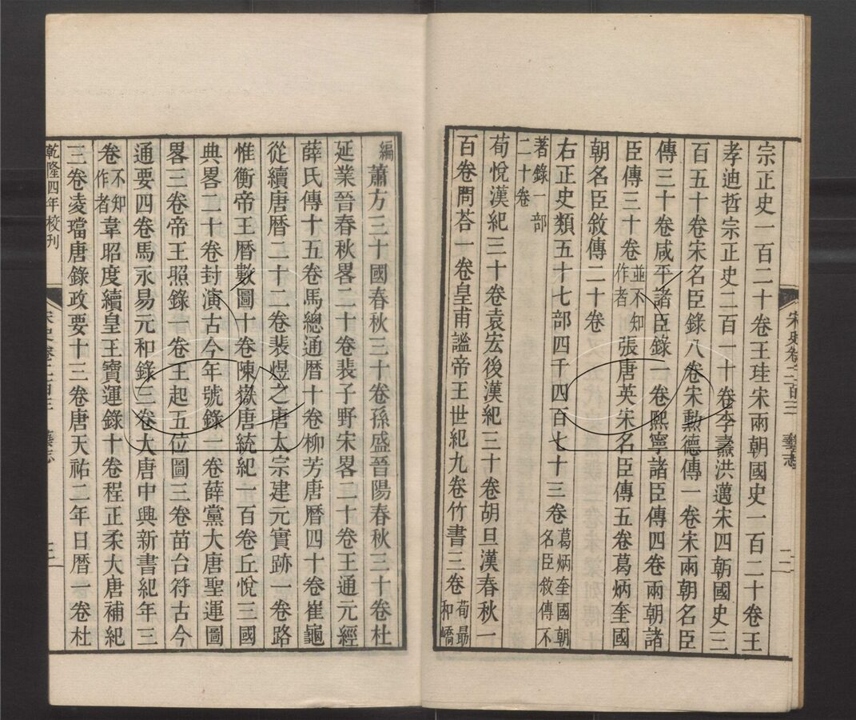 宋史卷二百三 藝志 二
宗正史一百二十卷王珪宋兩朝國史一百二十卷王
孝迪哲宗正史二百一十卷李燾洪邁宋四朝國史三
百五十卷宋名臣錄八卷宋勳德傳一卷宋兩朝名臣
傳三十卷咸平諸臣錄一卷熙寧諸臣傳四卷兩朝諸
臣傳三十卷並不知作者張唐英宋名臣傳五卷葛炳奎國
朝名臣敘傳二十卷
右正史類五十七部四千四百七十三卷葛炳奎國朝名臣敘傳不
著錄一部二十卷
荀悅漢紀三十卷袁宏後漢紀三十卷胡旦漢春秋一
百卷問荅一卷皇甫謐帝王世紀九卷竹書三卷荀勗和嶠
編蕭方三十國春秋三十卷孫盛晉陽春秋三十卷杜
延業晉春秋畧二十卷裴子野宋畧二十卷王通元經
薛氏傳十五卷馬總通曆十卷柳芳唐曆四十卷崔龜
從續唐曆二十二卷裴煜之唐太宗建元實跡一卷路
惟衡帝王曆數圖十卷陳嶽唐統紀一百卷丘悅三國
典畧二十卷封演古今年號錄一卷薛黨大唐聖運圖
畧三卷帝王照錄一卷王起五位圖三卷苗台符古今
通要四卷馬永易元和錄三卷大唐中興新書紀年三
卷不知作者韋昭度續皇王寶運錄十卷程正柔大唐補紀
三卷凌璠唐錄政要十三卷唐天祐二年日曆一卷杜
乾隆四年校刊